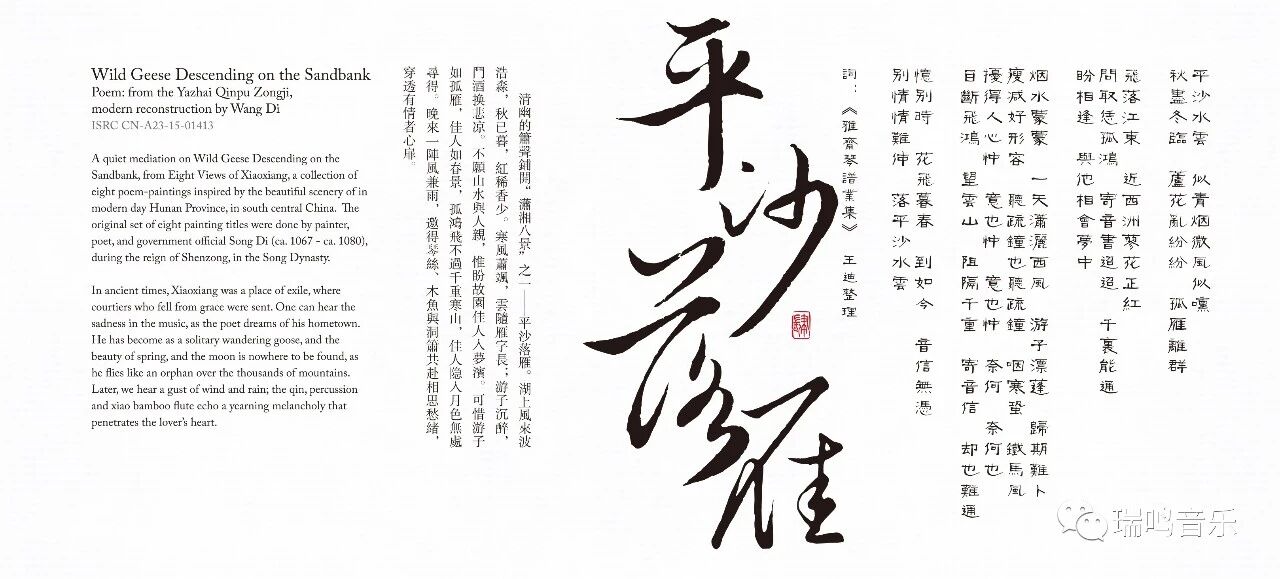 平沙水雲 似青烟微風似嚑
秋盡冬臨 蘆花亂紛紛 孤雁離群
飛落江東 近西洲蓼花正紅
問取恁孤鴻 寄音書迢迢 千裏能通
盼相逢 與他相會夢中
烟水蒙蒙 一天瀟灑西風 游子漂蓬 歸期難卜
瘦减好形容 聽疏鐘也聽疏鐘 咽寒蛩 鐵馬風
擾得人心忡 意也忡 意也忡 奈何 奈何也
目斷飛鴻 望雲山 阻隔千重 寄音信 却也難通
憶別時 花飛暮春 到如今 音信無憑
別情情難伸 落平沙水雲
詞:《雅齋琴譜業集》 王迪整理
平沙落雁
清幽的簫聲鋪開“瀟湘八景”之一——平沙落雁。湖上風來波
浩淼,秋已暮,紅稀香少。寒風蕭颯,雲隨雁字長;游子沉醉,
鬥酒換悲凉。不願山水與人親,惟盼故園佳人入夢濱。可惜游子
如孤雁,佳人如春景,孤鴻飛不過千重寒山,佳人隐入月色無處
尋得。晚來一陣風兼雨,邀得琴絲、木魚與洞簫共赴相思愁緒,
穿透有情者心扉。
Wild Geese Descending on the Sandbank
Poem: from the Yazhai Qinpu Zongji,
modern reconstruction by Wang Di
ISRC CN-A23-15-01413
A quiet mediation on Wild Geese Descending on the
Sandbank, from Eight Views of Xiaoxiang, a collection of
eight poem-paintings inspired by the beautiful scenery of in
modern day Hunan Province, in south central China. The
original set of eight painting titles were done by painter,
poet, and government official Song Di (ca. 1067 - ca. 1080),
during the reign of Shenzong, in the Song Dynasty.
In ancient times, Xiaoxiang was a place of exile, where
courtiers who fell from grace were sent. One can hear the
sadness in the music, as the poet dreams of his hometown.
He has become as a solitary wandering goose, and the
beauty of spring, and the moon is nowhere to be found, as
he flies like an orphan over the thousands of mountains.
Later, we hear a gust of wind and rain; the qin, percussion
and xiao bamboo flute echo a yearning melancholy that
penetrates the lover's heart.
瑞鸣音乐